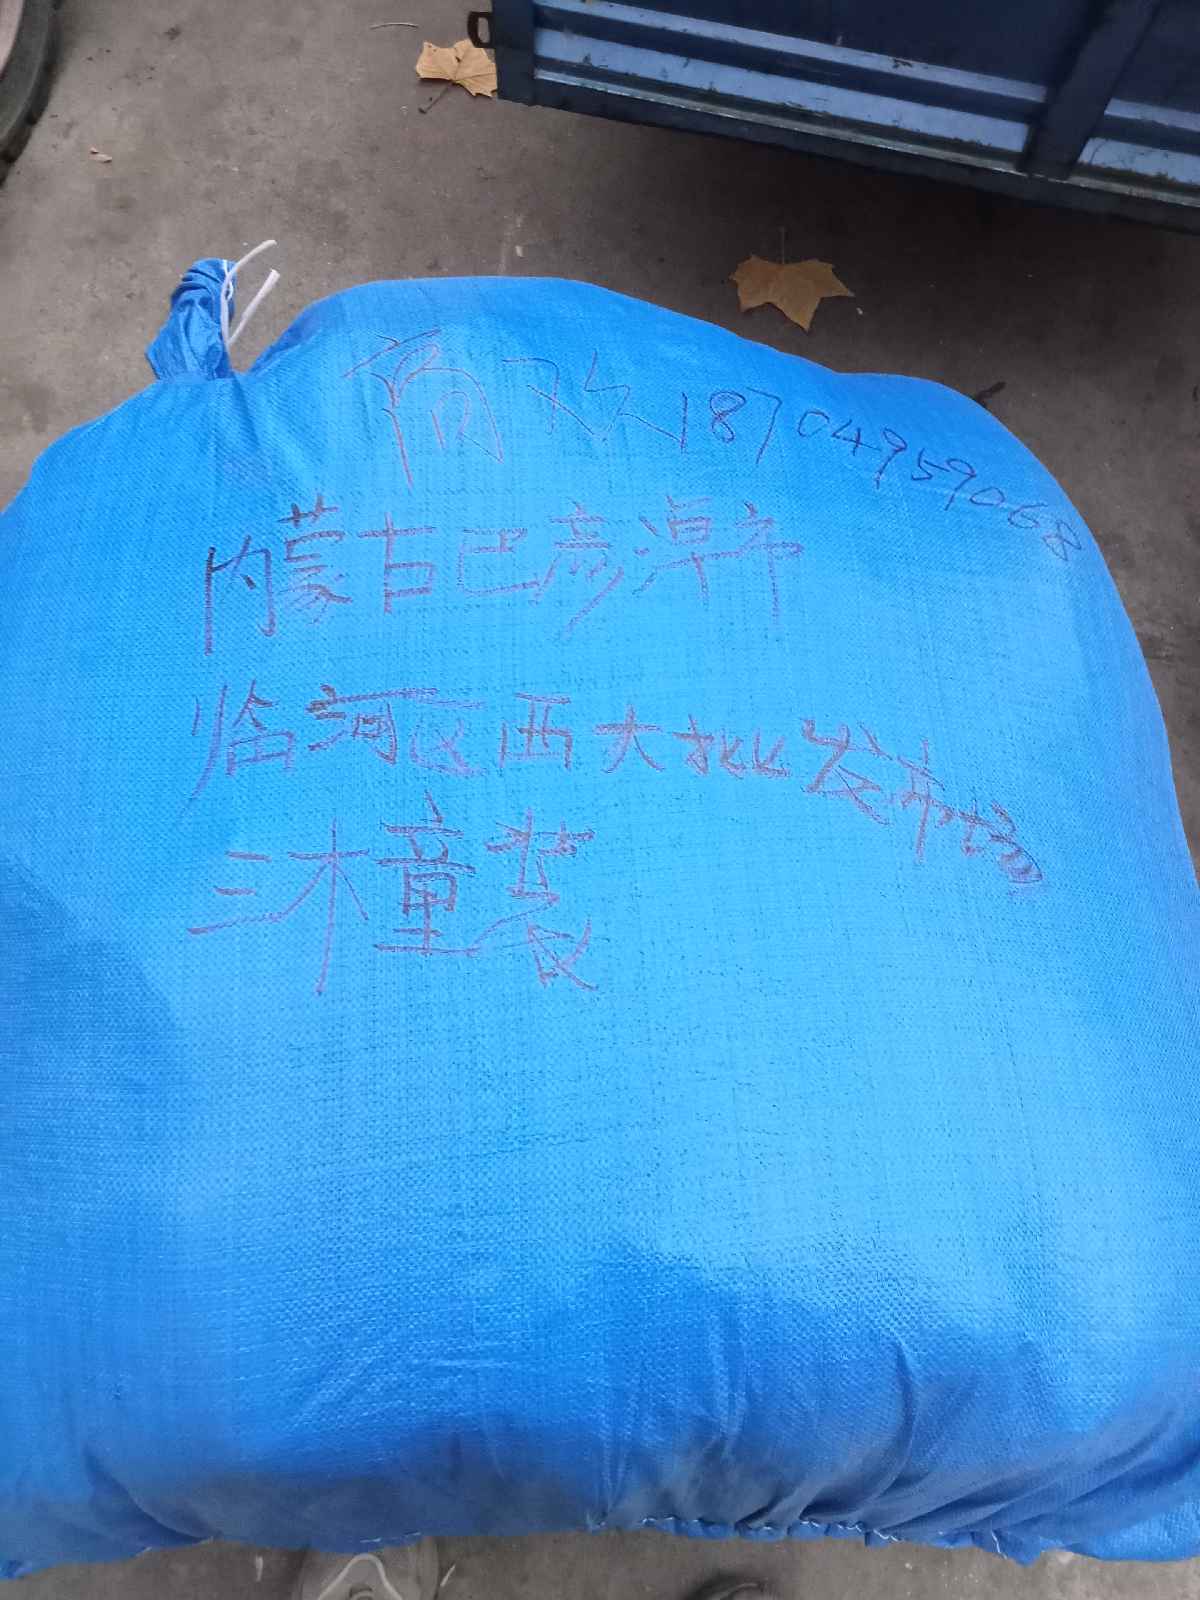 欢18704959068
内蒙古巴彦淖市
临河区西大批发市场
三木童装